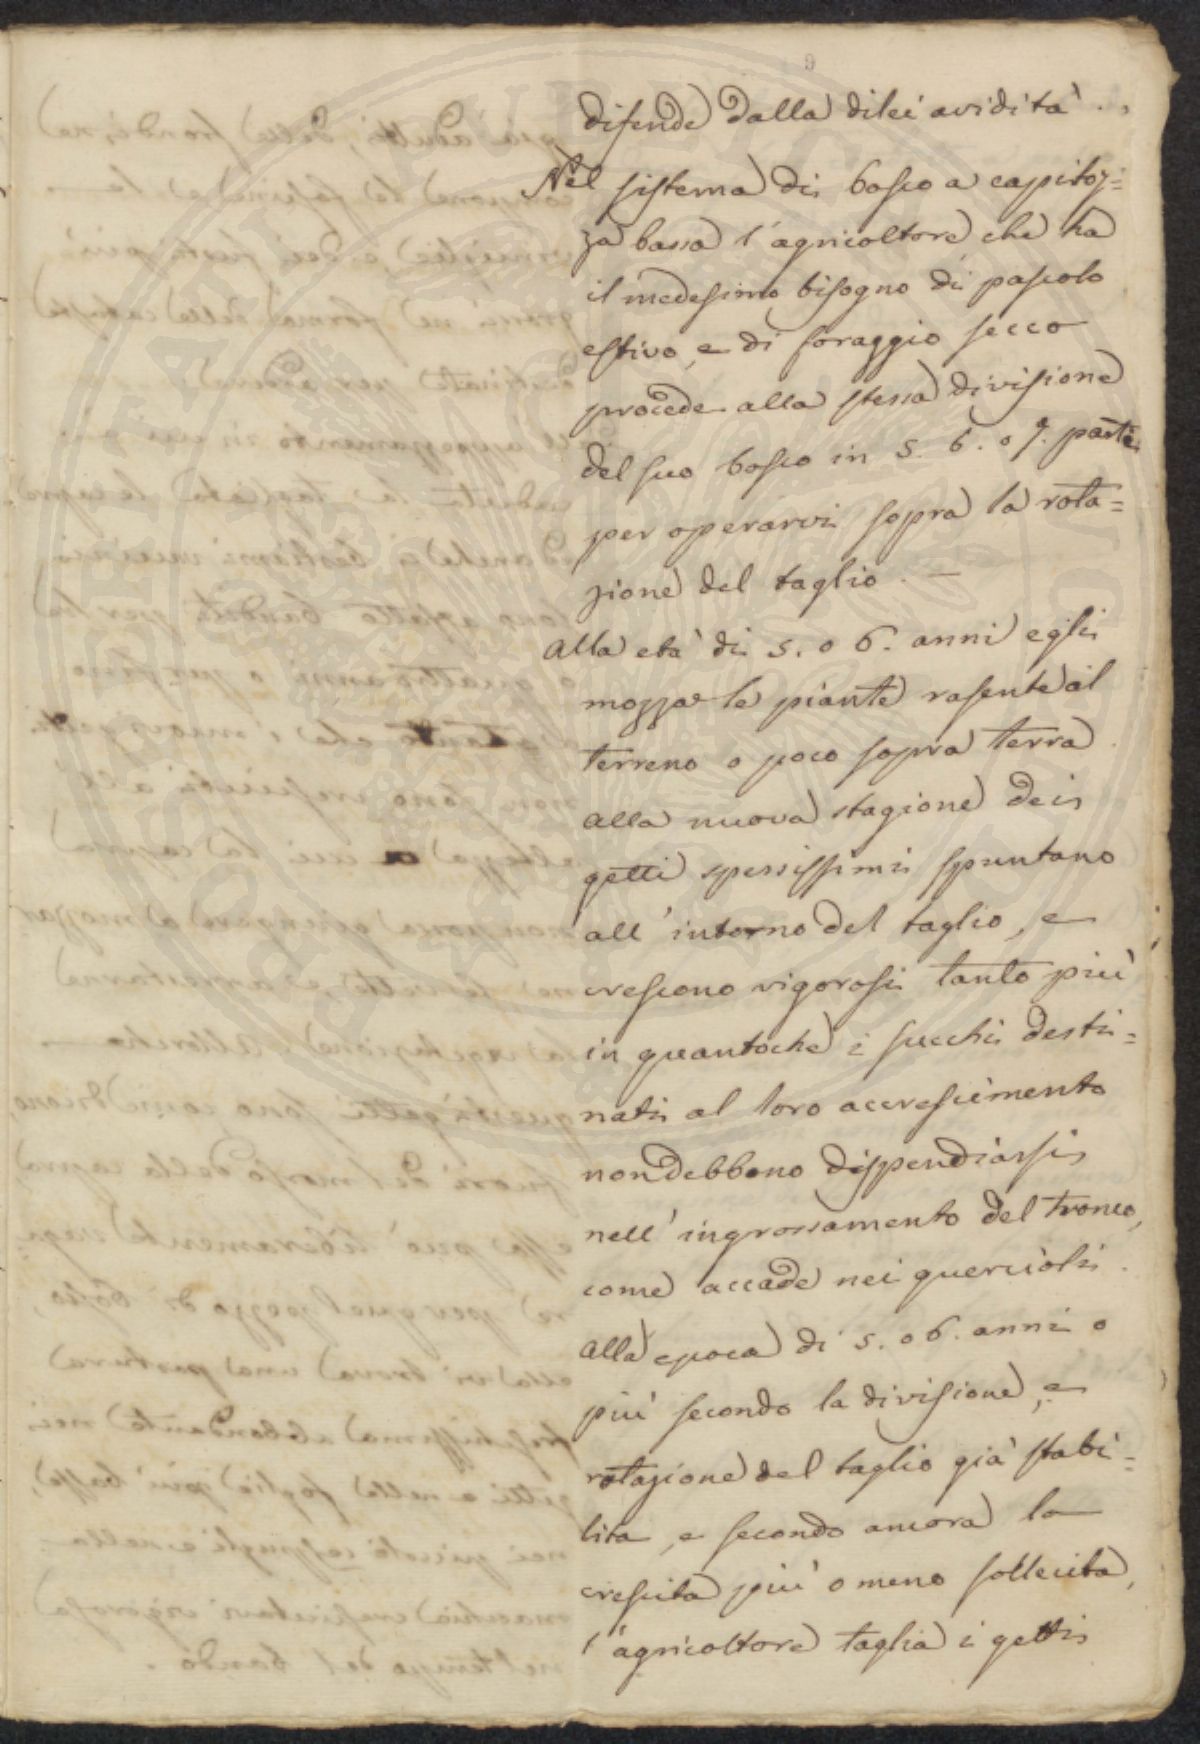 9
difende dalla dilei avidità.
Nel sistema di bosco a capitoz=
za bassa l'agricoltore che ha
il medesimo bisogno di pascolo
estivo, e di foraggio secco
procede alla stessa divisione
del suo bosco in 5. 6. o 7. parti
per operarvi sopra la rota=
zione del taglio. —
alla età di 5. o 6. anni egli
mozza le piante rasente al
terreno o poco sopra terra.
alla nuova stagione dei
getti spessissimi spuntano
all'intorno del taglio, e
crescono vigorosi tanto più
in quantoche i succhi desti=
nati al loro accrescimento
non debbono dispendiarsi
nell'ingrossamento del tronco,
come accade nei quercioli.
alla epoca di 5. o 6. anni o
più secondo la divisione, e
rotazione del taglio già stabi=
lita, e secondo ancora la
crescita più o meno sollecita,
l'agricoltore taglia i getti